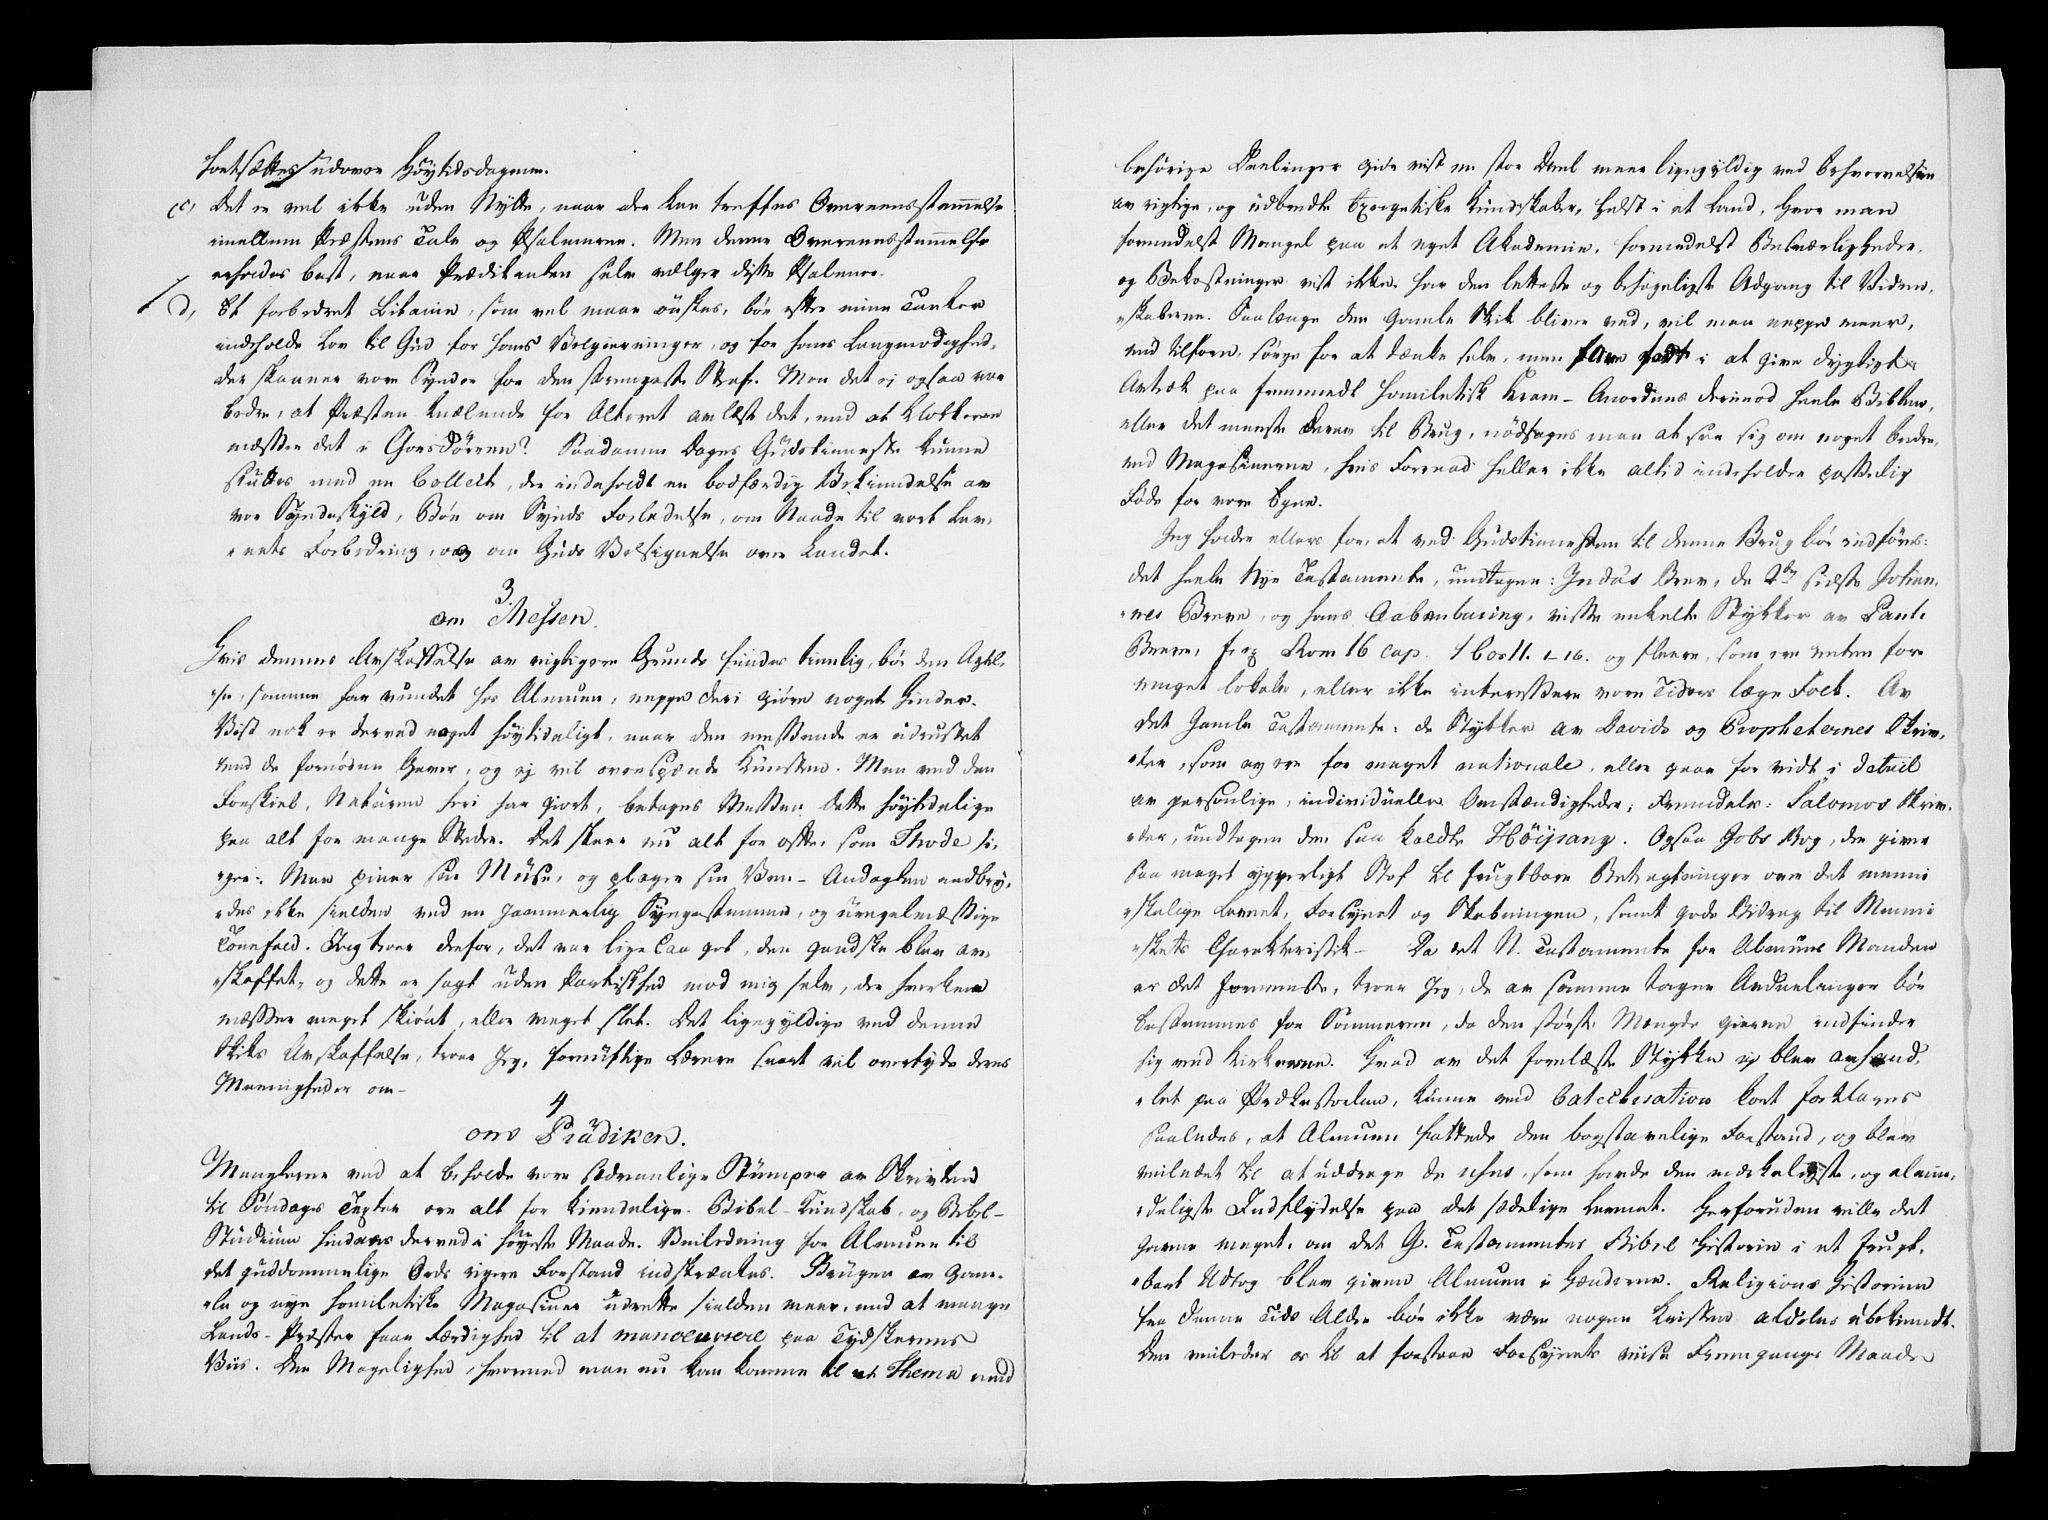 fortsættes udover Høytidsdagene.
c, Det er vel ikke uden Nytte, naar der kan træffes Overeensstemmelse
imellem Præstens Tale og Psalmerne. Men denne Overeensstemmelse
erholdes best, naar Prædikanten selv vælger disse Psalmer.
d, Et forbedret Litanie, som vel maae önskes, bör efter mine Tanker
indeholde Lov til Gud for hans Velgierninger, og for hans Langmodighed,
der skaaner vore Synder for den strengeste Straf. Mon det ej ogsaa var
bedre, at Præsten knælende for Alteret avlæste det, end at Klokkeren
mæsser det i Chorsdörren? Saadanne Dages Gudstienneste kunne
sluttes med en Collect, der indeholdt en bodfærdig Bekiendelse av
vor Syndeskyld, Bön om Synds Forladelse, om Naade til vort Lev-
nets Forbedring, og om Guds Velsignelse over Landet.
3.
om Messen.
Hvis dennes Avskaffelse av vigtigere Grunde findes tienlig, bör den Agtel-
se, samme har vundet hos Almuen, neppe deri giöre noget Hinder.
Vist nok er derved noget höytideligt, naar den messende er udrustet
med de fornödne Gaver, og ej vil overspænde Kunsten. Men ved den
Forskiel, Naturen heri har giort, betages Messen dette höytidelige
paa alt for mange Steder. Det skeer nu alt for ofte, som Thode si-
ger: Man piner sin Muse, og plager sin Ven - Andagten nedbry-
des ikke sielden ved en jammerlig Syngestemme, og uregelmæssige
Tonefald. Jeg troer derfor, det var lige saa got, den gandske blev av-
skaffet, og dette er sagt uden Partiskhed mod mig selv, der hverken
mæsser meget skiönt, eller meget slet. Det ligegyldige ved denne
Skiks Avskaffelse, troer Jeg, fornuftige Lærere snart vil overtyde deres
Meenigheder om -
4
om Prädiken.
Manglerne ved at beholde vore sædvanlige Stumper av Skriften
til Söndags Texter ere alt for kiendelige. Bibel-Kundskab, og Bibel-
Studium hindres derved i höyeste Maade. Veiledning for Almuen til
det guddommelige Ords rigere Forstand indskrænkes. Brugen av gam-
le og nye homiletiske Magasiner udrette sielden meer, end at mange
Lands-Præster faae Færdighed til at manoeuvrere paa Tydskernes
Viis. Den Magelighed, hvormed man nu kan komme til et Thema med
behörige Deelinger giör vist en stor Deel meer ligegyldig ved Erhvervelsen
av rigtige, og udbredte Exegetiske Kundskaber, helst i et Land, hvor man
formedelst Mangel paa et eget Akademie, formedelst Besværligheder,
og Bekostninger vist ikke har den letteste og behageligste Adgang til Viden-
skaberne. Saalænge den gamle Skik bliver ved, vil man neppe meer,
end tilforn, sörge for at tænke selv, men fare fort i at give dygtigt
Avtræk paa fremmedt homiletisk Kram - Anordnes derimod heele Bibelen,
eller det meeste derav til Brug, nödsages man at see sig om noget bedre,
end Magasinerne, hvis Forraad heller ikke altid indeholder passelig
Föde for vore Egne.
Jeg holder ellers for, at ved Gudstienesten til denne Brug bör indföres:
det heele Nye Testamente, undtagen: Judas Brev, de 2de sidste Johan-
nes Breve, og hans Aabenbaring, visse enkelte Stykker av Pauli
Breve, f. ex Rom 16 cap. 1 Cor 11. 1-16. og fleere, som ere enten for
meget lokale, eller ikke interessere vore Tiders læge Folk. Av
det Gamle Testamente: de Stykker av Davids og Propheternes Skriv-
ter, som ey ere for meget nationale, eller gaae for vidt i detail
av personlige, individuelle Omstændigheder; fremdeles: Salomos Skriv-
ter, undtagen den saa kaldte Höysang. Ogsaa Jobs Bog, der giver
saa meget ypperligt Stof til frugtbare Betragtninger over det menne-
skelige Levnet, Forsynet og Skabningen, samt gode Bidrag til Menne-
skets Charakteristik - Da det N. Testamente for Almues Manden
er det fornemste, troer Jeg, de av samme tagne Avdeelinger bör
bestemmes for Sommeren, da den störste Mengde gierne indfinder
sig ved Kirkerne. Hvad av det forelæste Stykke ej blev avhand-
let paa Prædkestolen, kunne ved Catechisation kort forklares
saaledes, at Almuen fattede den bogstavelige Forstand, og blev
veiledet til at uddrage de Ideer, som havde den mærkeligste, og almin-
deligste Indflydelse paa det sædelige Levnet. Herforuden ville det
gavne meget, om det G. Testamentes Bibel Historie i et frugt-
bart Udtog blev given Almuen i Hænderne. Religions Historien
fra denne Tids Alder bör ikke være nogen Kristen aldeles ubekiendt.
Den veileder os til at forstaae Forsynets viise Fremgangs Maade